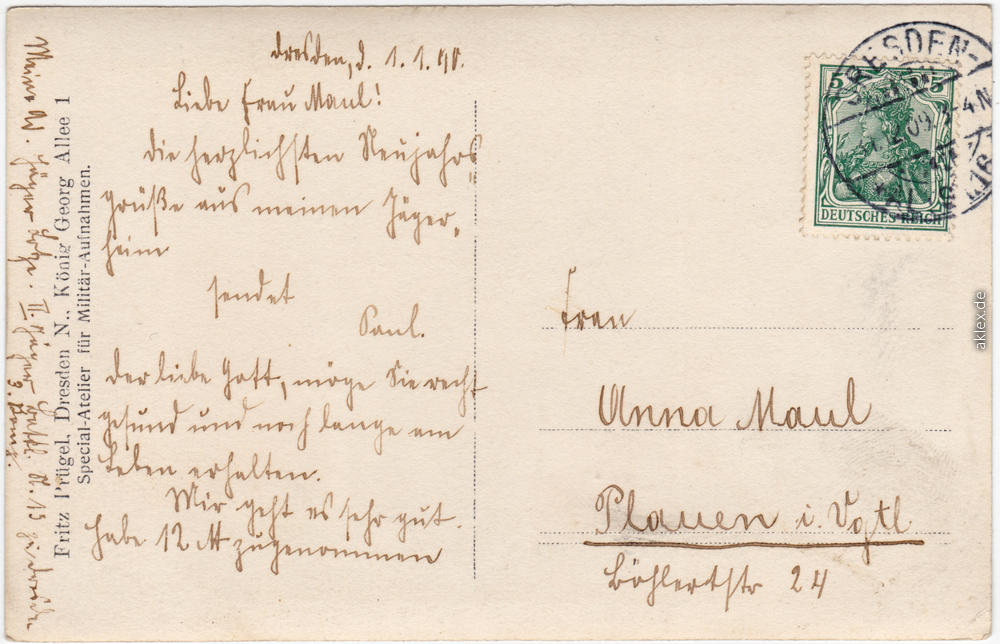 Dresden, d. 1.1.10.
Liebe Frau Maul!
Die herzlichsten Neujahrs
grüße aus meinen Jäger-
heim
sendet
Paul.
Der liebe Gott, möge Sie recht
gesund und noch lange am
Leben erhalten.
Mir geht es sehr gut.
habe 12 ℔ zugenommen
Meine Adr. Jäger II. Jäger Battl. N. 13 Dresden
3. Komp.
Fritz Prügel, Dresden N., König Georg Allee 1
Special-Atelier für Militär-Aufnahmen.
DRESDEN-
09 3-4N
5 5
DEUTSCHES REICH
Frau
Anna Maul
Plauen i. Vgtl
Böhlerstr 24
aklex.de